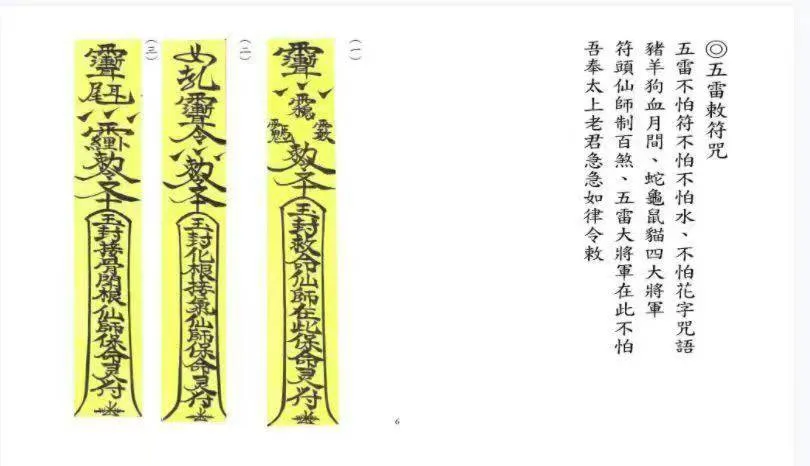 ◎五雷敕符咒
五雷不怕符不怕不怕水、不怕花字咒語
豬羊狗血月間、蛇龜鼠貓四大將軍
符頭仙師制百煞、五雷大將軍在此不怕
吾奉太上老君急急如律令敕
(一)
玉封救命仙師在此保命灵符
(二)
玉封化根接氣仙師保命灵符
(三)
玉封接骨閉根仙師保命灵符
6